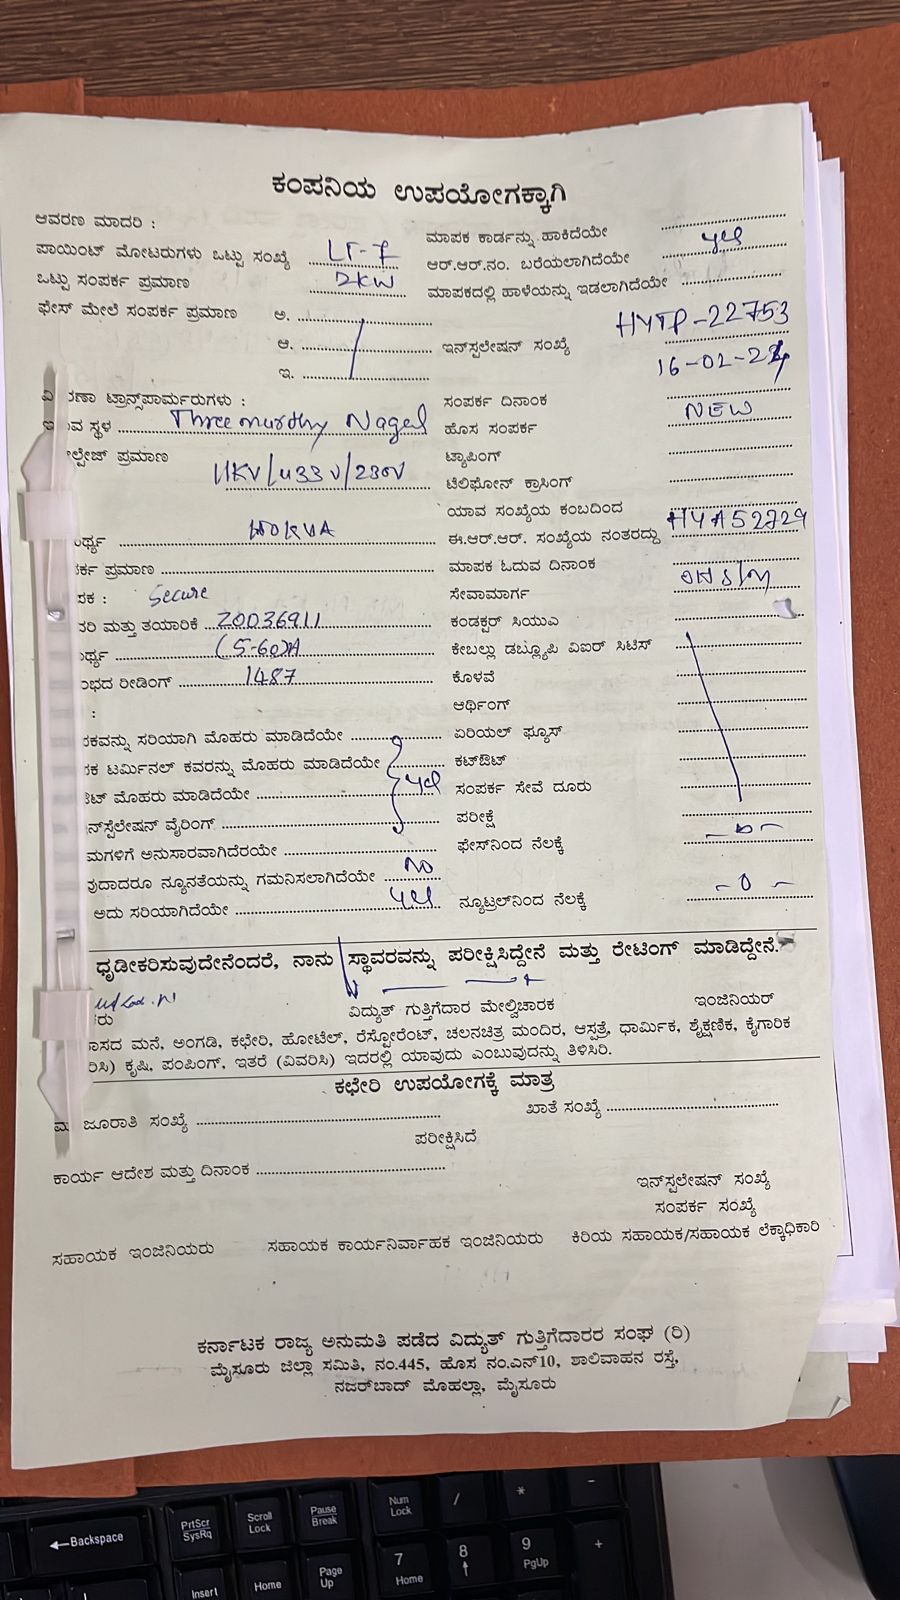 ಕಂಪನಿಯ ಉಪಯೋಗಕ್ಕಾಗಿ
ಆವರಣ ಮಾದರಿ :
ಮಾಪಕ ಕಾರ್ಡನ್ನು ಹಾಕಿದೆಯೇ
ಪಾಯಿಂಟ್ ಮೋಟರುಗಳು ಒಟ್ಟು ಸಂಖ್ಯೆ LT-7
ಆರ್.ಆರ್.ನಂ. ಬರೆಯಲಾಗಿದೆಯೇ yes
ಒಟ್ಟು ಸಂಪರ್ಕ ಪ್ರಮಾಣ 2KW
ಮಾಪಕದಲ್ಲಿ ಹಾಳೆಯನ್ನು ಇಡಲಾಗಿದೆಯೇ
ಫೇಸ್ ಮೇಲೆ ಸಂಪರ್ಕ ಪ್ರಮಾಣ ಅ.
ಆ.
ಇನ್‌ಸ್ಟಲೇಷನ್ ಸಂಖ್ಯೆ HYTP-22753
ಇ.
16-02-24
ರಣಾ ಟ್ರಾನ್ಸ್‌ಪಾರ್ಮರುಗಳು :
ಸಂಪರ್ಕ ದಿನಾಂಕ
ವ ಸ್ಥಳ Threemurthy Nagar
ಹೊಸ ಸಂಪರ್ಕ NEW
ಲ್ಟೇಜ್ ಪ್ರಮಾಣ 11KV/433V/230V
ಟ್ಯಾಪಿಂಗ್
ಟೆಲಿಫೋನ್ ಕ್ರಾಸಿಂಗ್
ಯಾವ ಸಂಖ್ಯೆಯ ಕಂಬದಿಂದ
ರ್ಥ್ಯ KVA
ಈ.ಆರ್.ಆರ್. ಸಂಖ್ಯೆಯ ನಂತರದ್ದು HYA52729
ರ್ಕ ಪ್ರಮಾಣ
ಮಾಪಕ ಓದುವ ದಿನಾಂಕ
ಪಕ : Secure
ಸೇವಾಮಾರ್ಗ
ದರಿ ಮತ್ತು ತಯಾರಿಕೆ 20036911
ಕಂಡಕ್ಟರ್ ಸಿಯುಎ
ರ್ಥ್ಯ (5-60)A
ಕೇಬಲ್ಲು ಡಬ್ಲ್ಯೂಪಿ ವಿಐರ್ ಸಿಟಿಸ್
ಂಭದ ರೀಡಿಂಗ್ 1487
ಕೊಳವೆ
:
ಆರ್ಥಿಂಗ್
ಪಕವನ್ನು ಸರಿಯಾಗಿ ಮೊಹರು ಮಾಡಿದೆಯೇ
ಏರಿಯಲ್ ಫ್ಯೂಸ್
ಪಕ ಟರ್ಮಿನಲ್ ಕವರನ್ನು ಮೊಹರು ಮಾಡಿದೆಯೇ
ಕಟ್‌ಔಟ್
ಔಟ್ ಮೊಹರು ಮಾಡಿದೆಯೇ yes
ಸಂಪರ್ಕ ಸೇವೆ ದೂರು
ನ್‌ಸ್ಟೆಲೇಷನ್ ವೈರಿಂಗ್
ಪರೀಕ್ಷೆ
ಮಗಳಿಗೆ ಅನುಸಾರವಾಗಿದೆರಯೇ
ಫೇಸ್‌ನಿಂದ ನೆಲಕ್ಕೆ -0-
ವುದಾದರೂ ನ್ಯೂನತೆಯನ್ನು ಗಮನಿಸಲಾಗಿದೆಯೇ NO
ಅದು ಸರಿಯಾಗಿದೆಯೇ yes
ನ್ಯೂಟ್ರಲ್‌ನಿಂದ ನೆಲಕ್ಕೆ -0-
ಧೃಡೀಕರಿಸುವುದೇನೆಂದರೆ, ನಾನು ಸ್ಥಾವರವನ್ನು ಪರೀಕ್ಷಿಸಿದ್ದೇನೆ ಮತ್ತು ರೇಟಿಂಗ್ ಮಾಡಿದ್ದೇನೆ.
ರು
ವಿದ್ಯುತ್ ಗುತ್ತಿಗೆದಾರ ಮೇಲ್ವಿಚಾರಕ
ಇಂಜಿನಿಯರ್
ಾಸದ ಮನೆ, ಅಂಗಡಿ, ಕಛೇರಿ, ಹೋಟೆಲ್, ರೆಸ್ಟೋರೆಂಟ್, ಚಲನಚಿತ್ರ ಮಂದಿರ, ಆಸ್ಪತ್ರೆ, ಧಾರ್ಮಿಕ, ಶೈಕ್ಷಣಿಕ, ಕೈಗಾರಿಕ
ರಿಸಿ) ಕೃಷಿ, ಪಂಪಿಂಗ್, ಇತರೆ (ವಿವರಿಸಿ) ಇದರಲ್ಲಿ ಯಾವುದು ಎಂಬುವುದನ್ನು ತಿಳಿಸಿರಿ.
ಕಛೇರಿ ಉಪಯೋಗಕ್ಕೆ ಮಾತ್ರ
ಮಂಜೂರಾತಿ ಸಂಖ್ಯೆ
ಖಾತೆ ಸಂಖ್ಯೆ
ಪರೀಕ್ಷಿಸಿದೆ
ಕಾರ್ಯ ಆದೇಶ ಮತ್ತು ದಿನಾಂಕ
ಇನ್‌ಸ್ಟಲೇಷನ್ ಸಂಖ್ಯೆ
ಸಂಪರ್ಕ ಸಂಖ್ಯೆ
ಸಹಾಯಕ ಇಂಜಿನಿಯರು ಸಹಾಯಕ ಕಾರ್ಯನಿರ್ವಾಹಕ ಇಂಜಿನಿಯರು ಕಿರಿಯ ಸಹಾಯಕ/ಸಹಾಯಕ ಲೆಕ್ಕಾಧಿಕಾರಿ
ಕರ್ನಾಟಕ ರಾಜ್ಯ ಅನುಮತಿ ಪಡೆದ ವಿದ್ಯುತ್ ಗುತ್ತಿಗೆದಾರರ ಸಂಘ (ರಿ)
ಮೈಸೂರು ಜಿಲ್ಲಾ ಸಮಿತಿ, ನಂ.445, ಹೊಸ ನಂ.ಎನ್10, ಶಾಲಿವಾಹನ ರಸ್ತೆ,
ನಜರ್‌ಬಾದ್ ಮೊಹಲ್ಲಾ, ಮೈಸೂರು
Backspace
PrtScr
SysRq
Scroll
Lock
Pause
Break
Num
Lock
/
*
-
Insert
Home
Page
Up
7
Home
8
9
PgUp
+